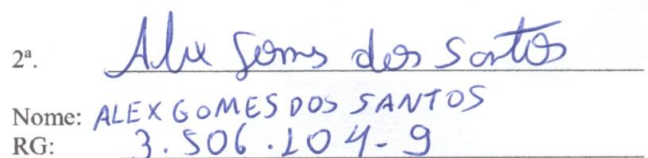 2ª. Alex Gomes dos Santos
Nome: ALEX GOMES DOS SANTOS
RG: 3.506.104-9